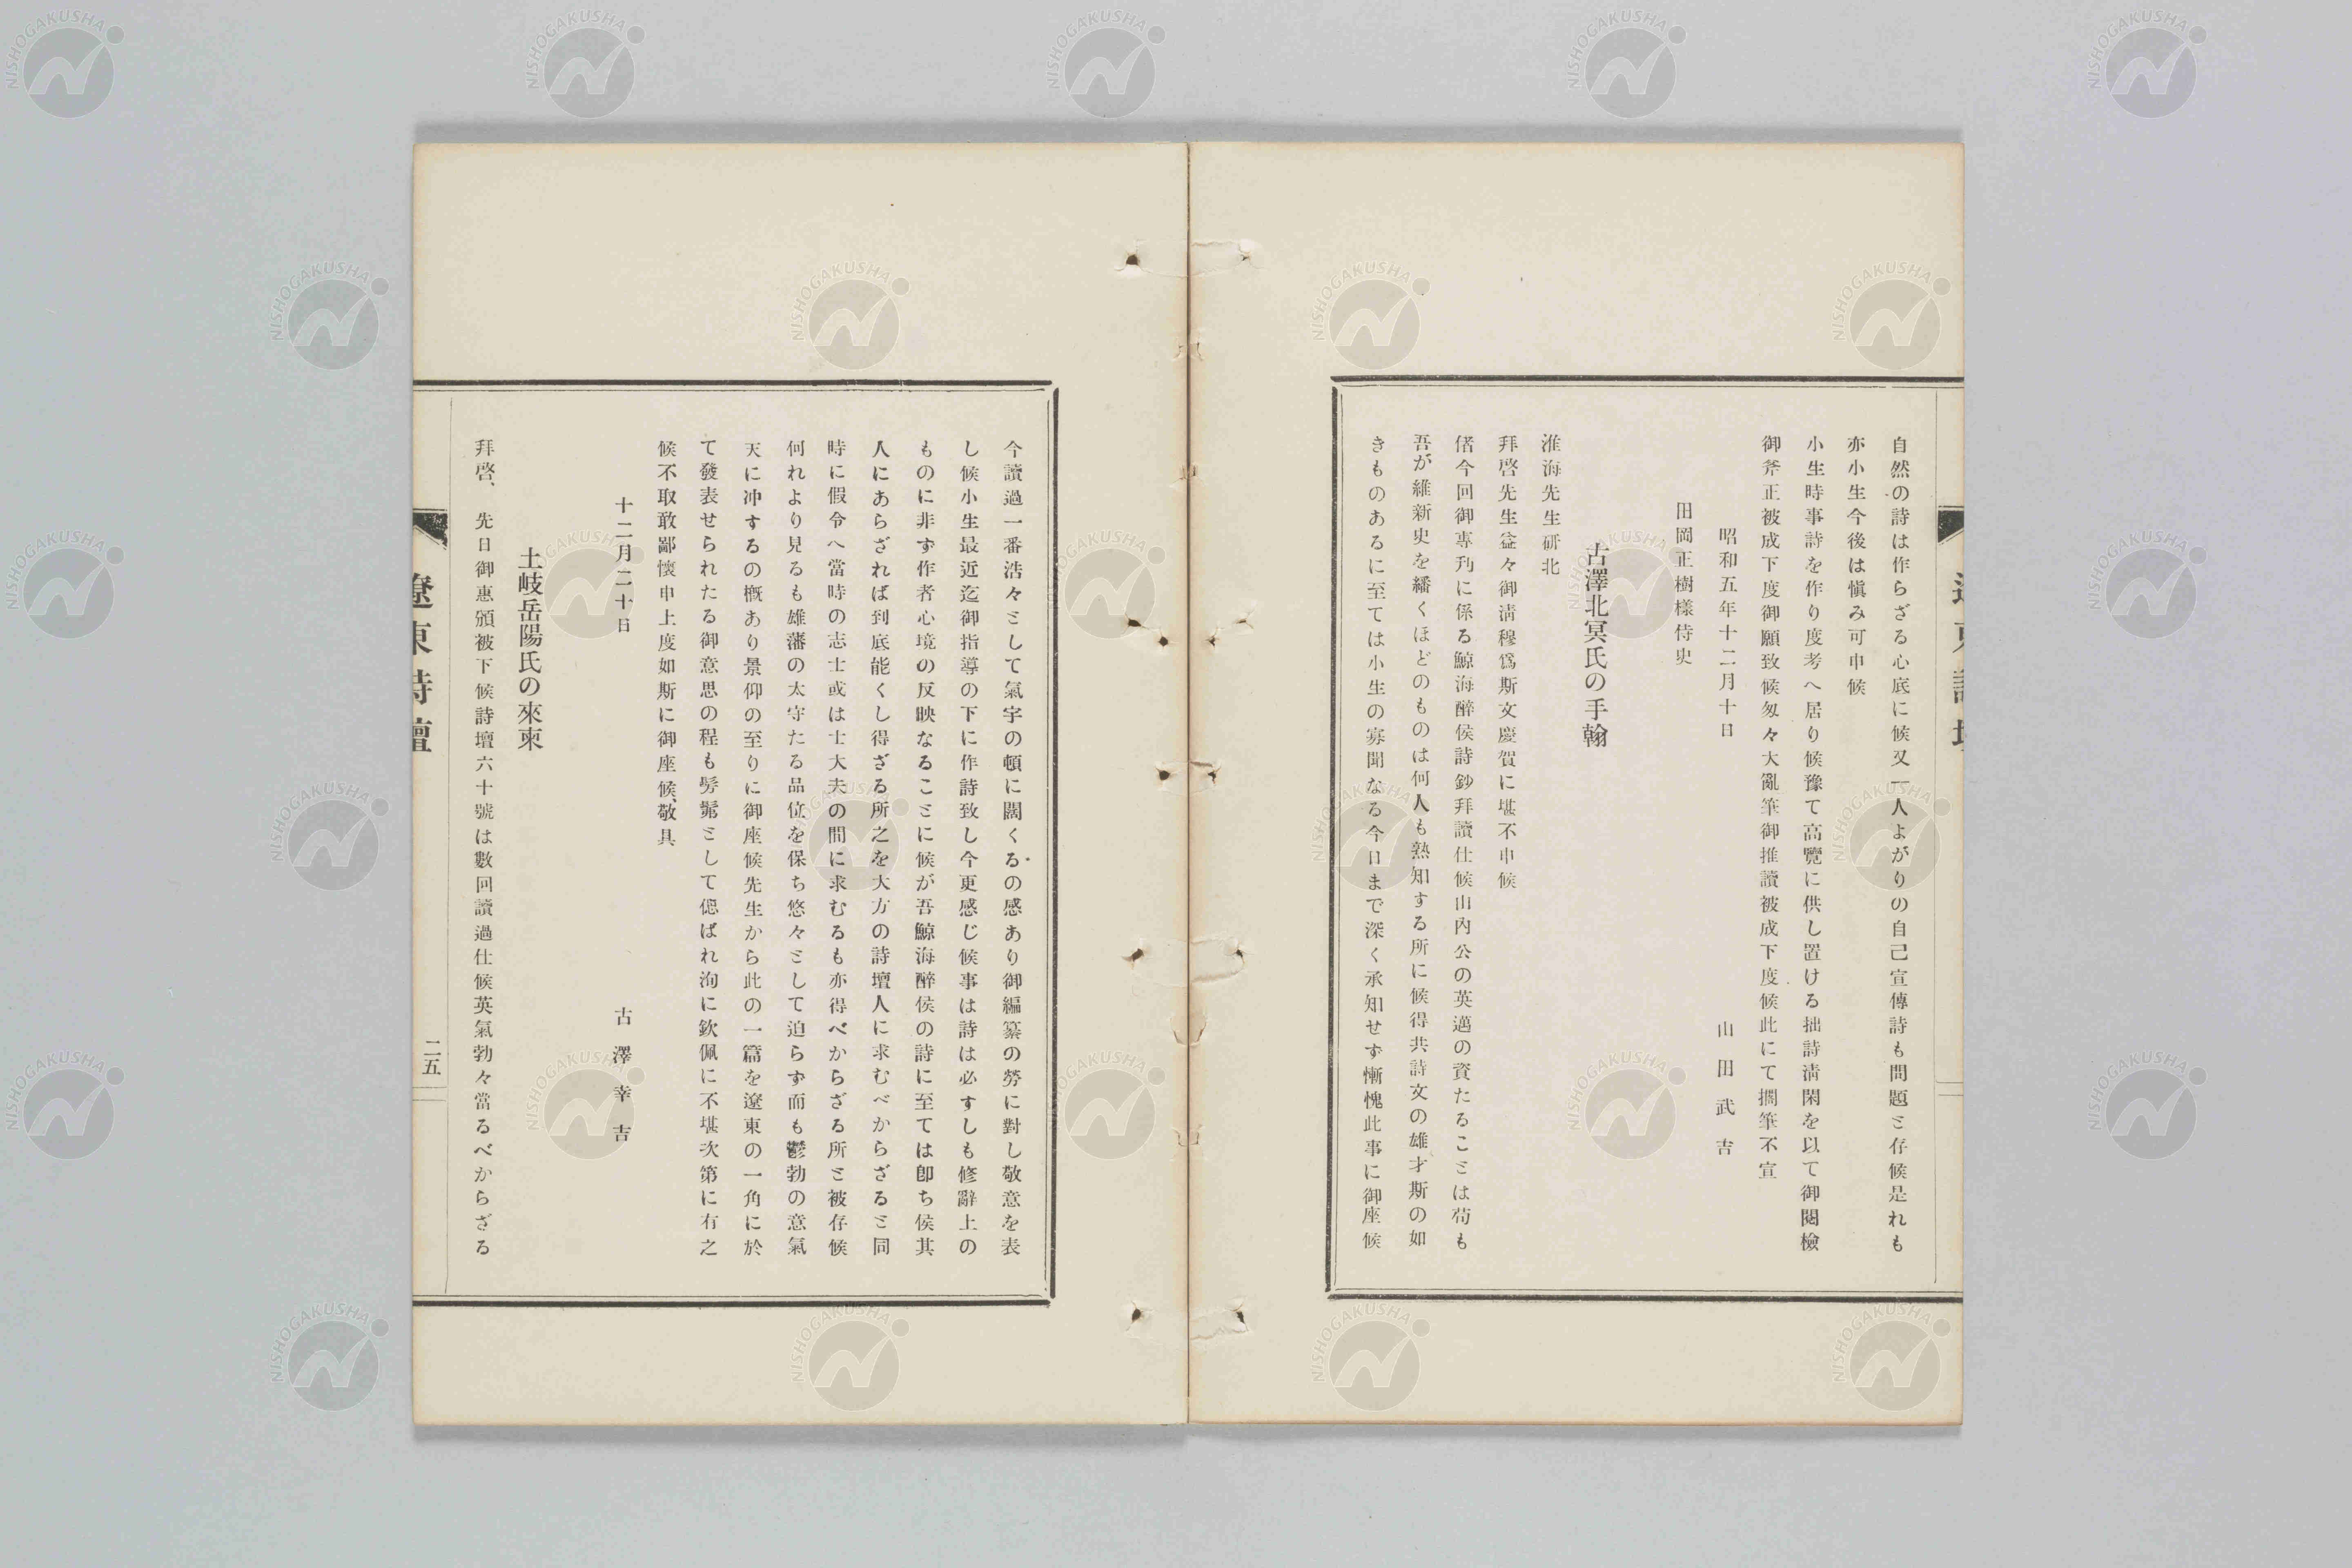 自然の詩は作らざる心底に候又一人よがりの自己宣傳詩も問題と存候是れも
亦小生今後は愼み可申候
小生時事詩を作り度考へ居り候豫て高覽に供し置ける拙詩淸閑を以て御閱檢
御斧正被成下度御願致候匆々大亂筆御推讀被成下度候此にて擱筆不宣
昭和五年十二月十日
山田武吉
田岡正樹樣侍史
古澤北冥氏の手翰
淮海先生硏北
拜啓先生益々御淸穆爲斯文慶賀に堪不申候
偖今回御專刋に係る鯨海醉侯詩鈔拜讀仕候山內公の英邁の資たることは苟も
吾が維新史を繙くほどのものは何人も熟知する所に候得共詩文の雄才斯の如
きものあるに至ては小生の寡聞なる今日まで深く承知せず慚愧此事に御座候
今讀過一番浩々として氣宇の頓に闊くるの感あり御編纂の勞に對し敬意を表
し候小生最近迄御指導の下に作詩致し今更感じ候事は詩は必ずしも修辭上の
ものに非ず作者心境の反映なることに候が吾鯨海醉侯の詩に至ては卽ち侯其
人にあらざれば到底能くし得ざる所之を大方の詩壇人に求むべからざると同
時に假令へ當時の志士或は士大夫の間に求むるも亦得べからざる所と被存候
何れより見るも雄藩の太守たる品位を保ち悠々として迫らず而も鬱勃の意氣
天に冲するの槪あり景仰の至りに御座候先生から此の一篇を遼東の一角に於
て發表せられたる御意思の程も髣髴として偲ばれ洵に欽佩に不堪次第に有之
候不取敢鄙懷申上度如斯に御座候、敬具
十二月二十日
古澤幸吉
土岐岳陽氏の來柬
拜啓、先日御惠頒被下候詩壇六十號は數回讀過仕候英氣勃々當るべからざる
遼東詩壇
二五